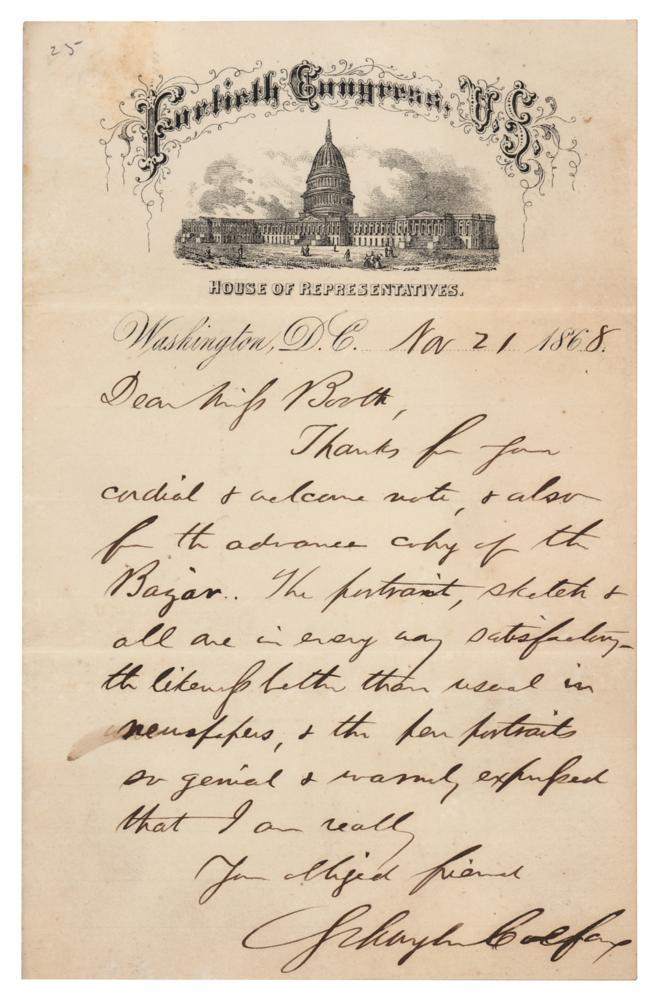 25
Fortieth Congress, U.S.
HOUSE OF REPRESENTATIVES.
Washington, D.C. Nov 21 1868.
Dear Miss Booth,
Thanks for your
cordial & welcome note, & also
for the advance copy of the
Bazar.. The portrait, sketch &
all are in every way satisfactory—
the likeness better than usual in
newspapers, & the pen portraits
so genial & warmly expressed
that I am really
Your obliged friend
Schuyler Colfax